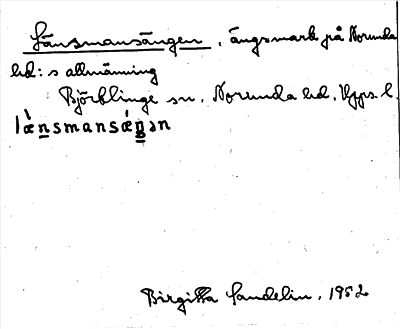 Länsmansängen, ängsmark på Norunda
hd:s allmänning
Björklinge sn, Norunda hd, Upps. l.
lǽn̲smansǽn̲̲ən
Birgitta Sandelin, 1952